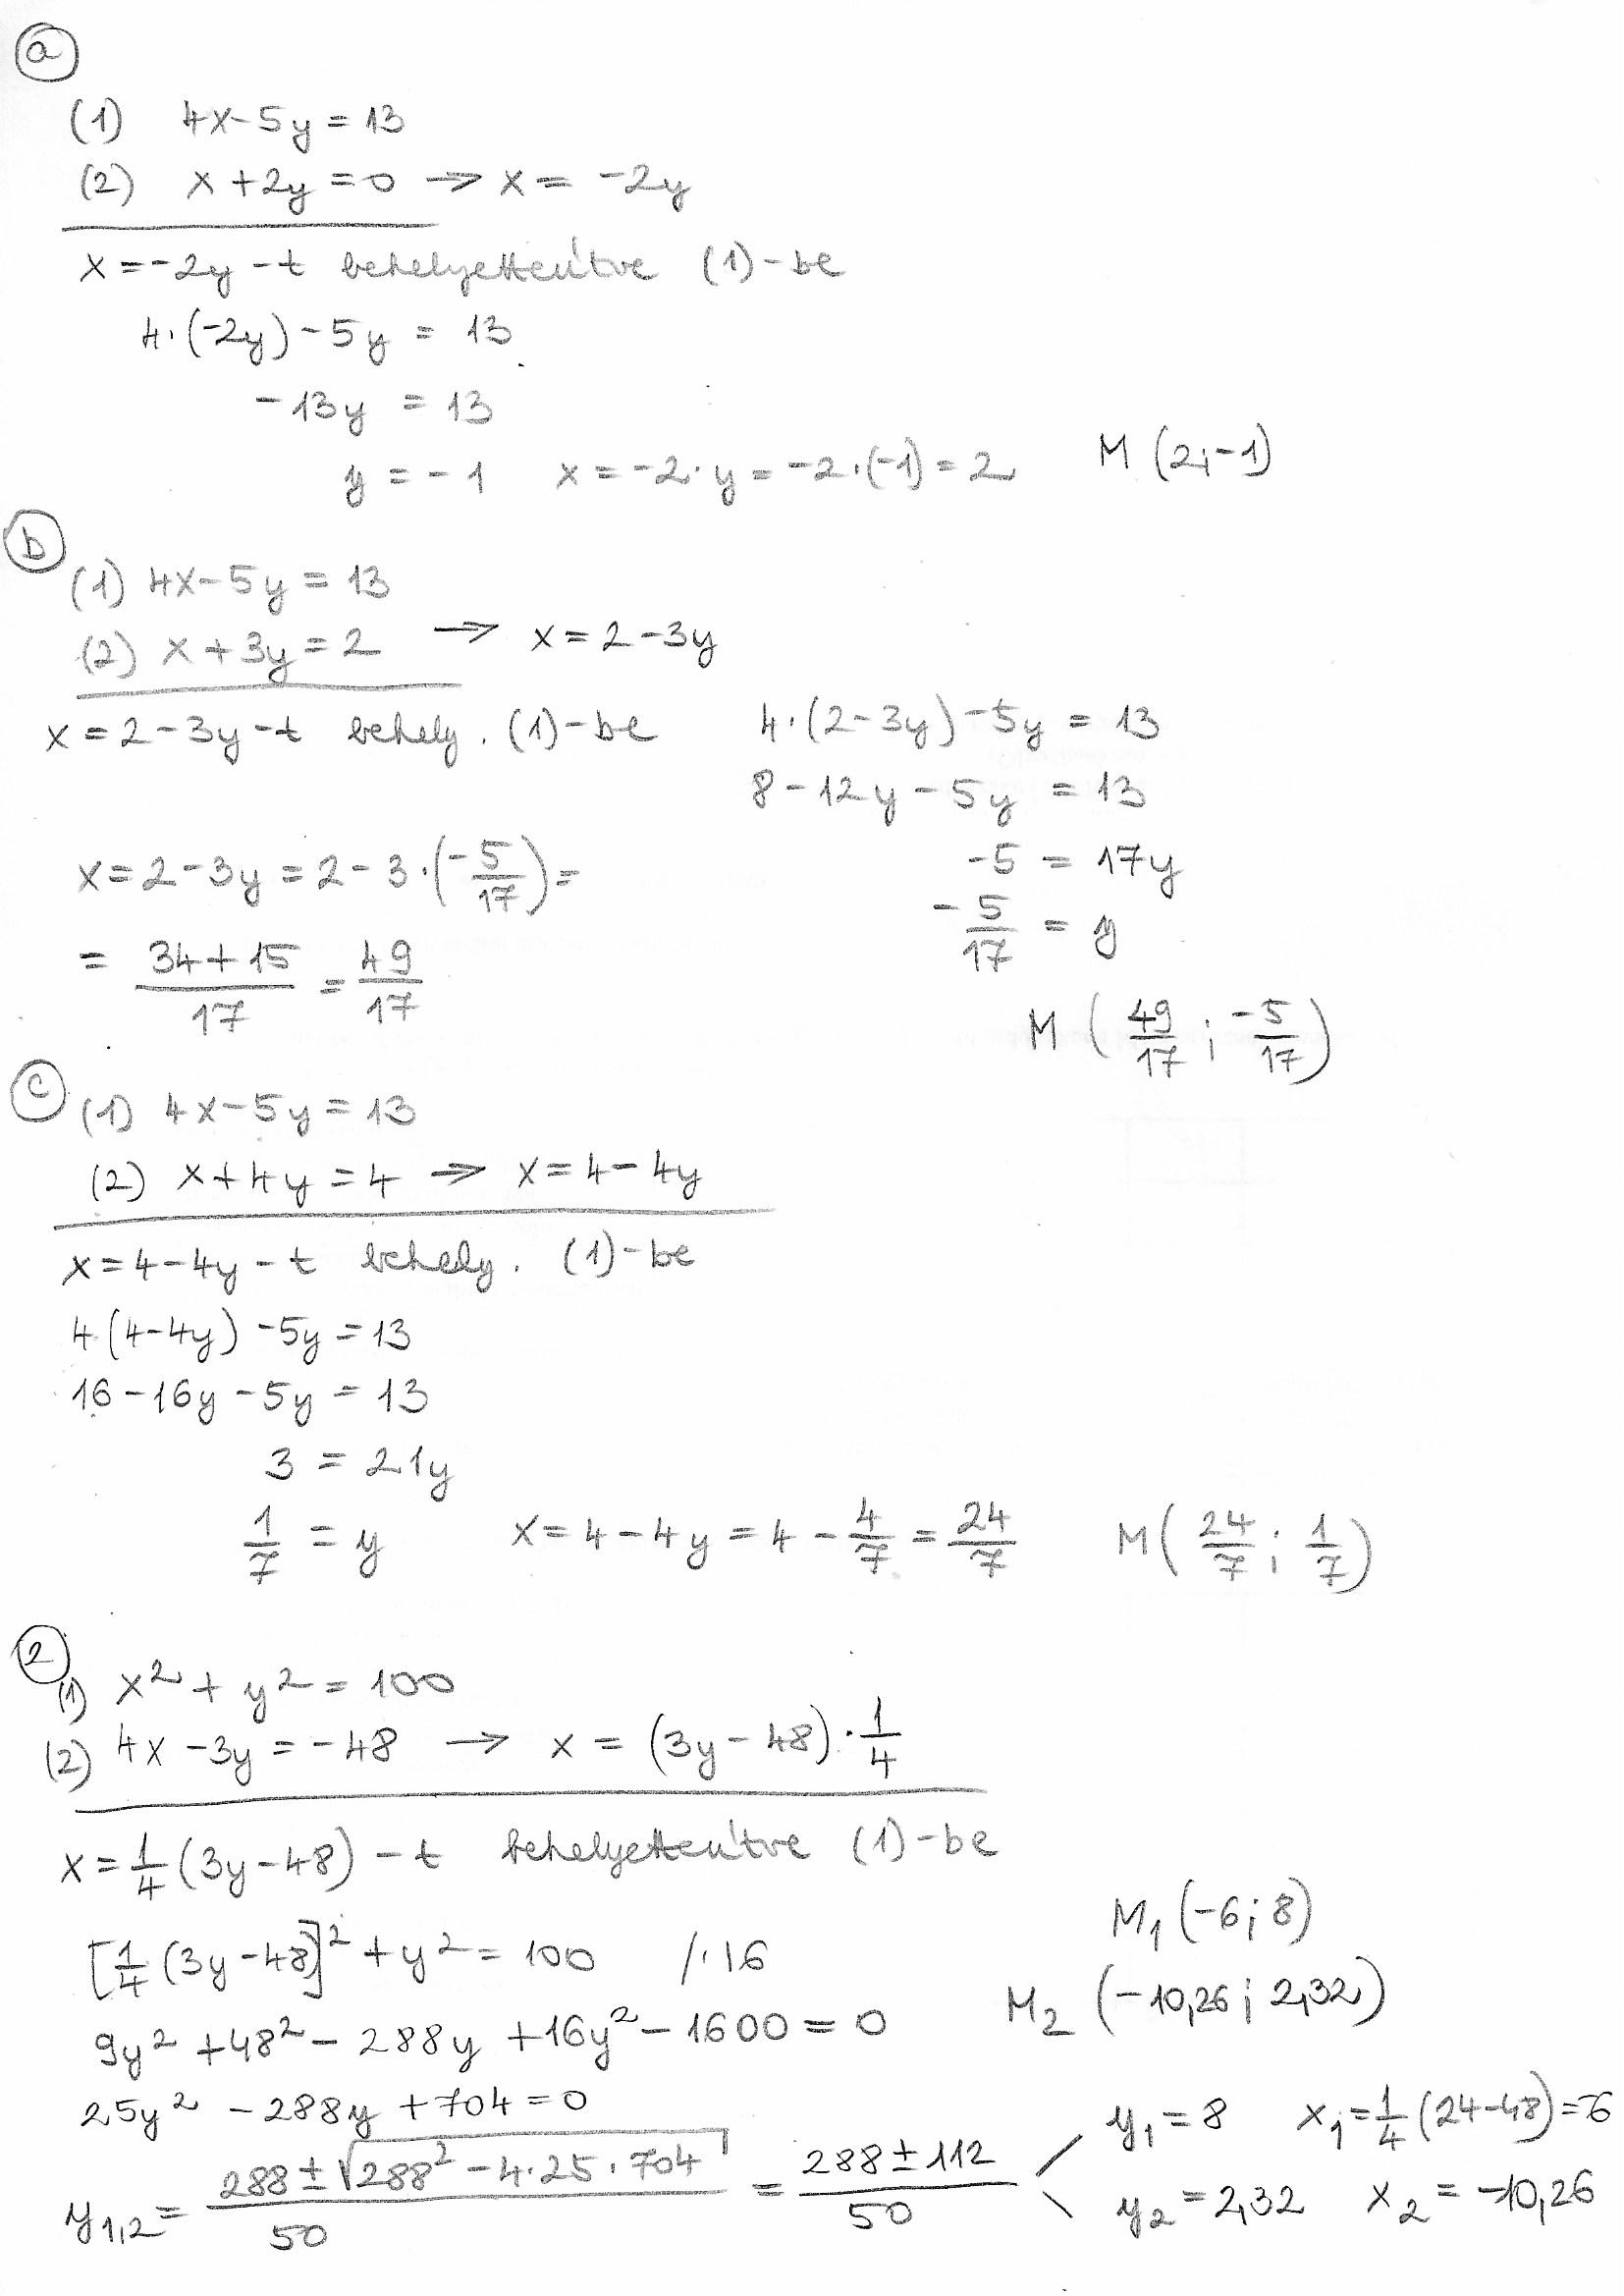 a
(1) 4x-5y = 13
(2) x+2y = 0 → x = -2y
x = -2y -t behelyettesítve (1)-be
4·(-2y)-5y = 13
-13y = 13
y = -1 x = -2·y = -2·(-1) = 2 M (2;-1)
b
(1) 4x-5y = 13
(2) x+3y = 2 → x = 2-3y
x = 2-3y-t behely. (1)-be
4·(2-3y)-5y = 13
8-12y-5y = 13
-5 = 17y
-5/17 = y
x = 2-3y = 2-3·(-5/17) =
= (34+15)/17 = 49/17
M (49/17 ; -5/17)
c
(1) 4x-5y = 13
(2) x+4y = 4 → x = 4-4y
x = 4-4y-t behely. (1)-be
4·(4-4y)-5y = 13
16-16y-5y = 13
3 = 21y
1/7 = y x = 4-4y = 4-4/7 = 24/7 M (24/7 ; 1/7)
2
(1) x²+y² = 100
(2) 4x-3y = -48 → x = (3y-48)·1/4
x = 1/4 (3y-48) -t behelyettesítve (1)-be
[1/4 (3y-48)]²+y² = 100 /·16
9y²+48²-288y+16y²-1600 = 0
25y²-288y+704 = 0
y1,2 = (288±√(288²-4·25·704))/50 = (288±112)/50
y₁ = 8 x₁ = 1/4 (24-48) = -6
y₂ = 2,32 x₂ = -10,26
M₁ (-6;8)
M₂ (-10,26; 2,32)